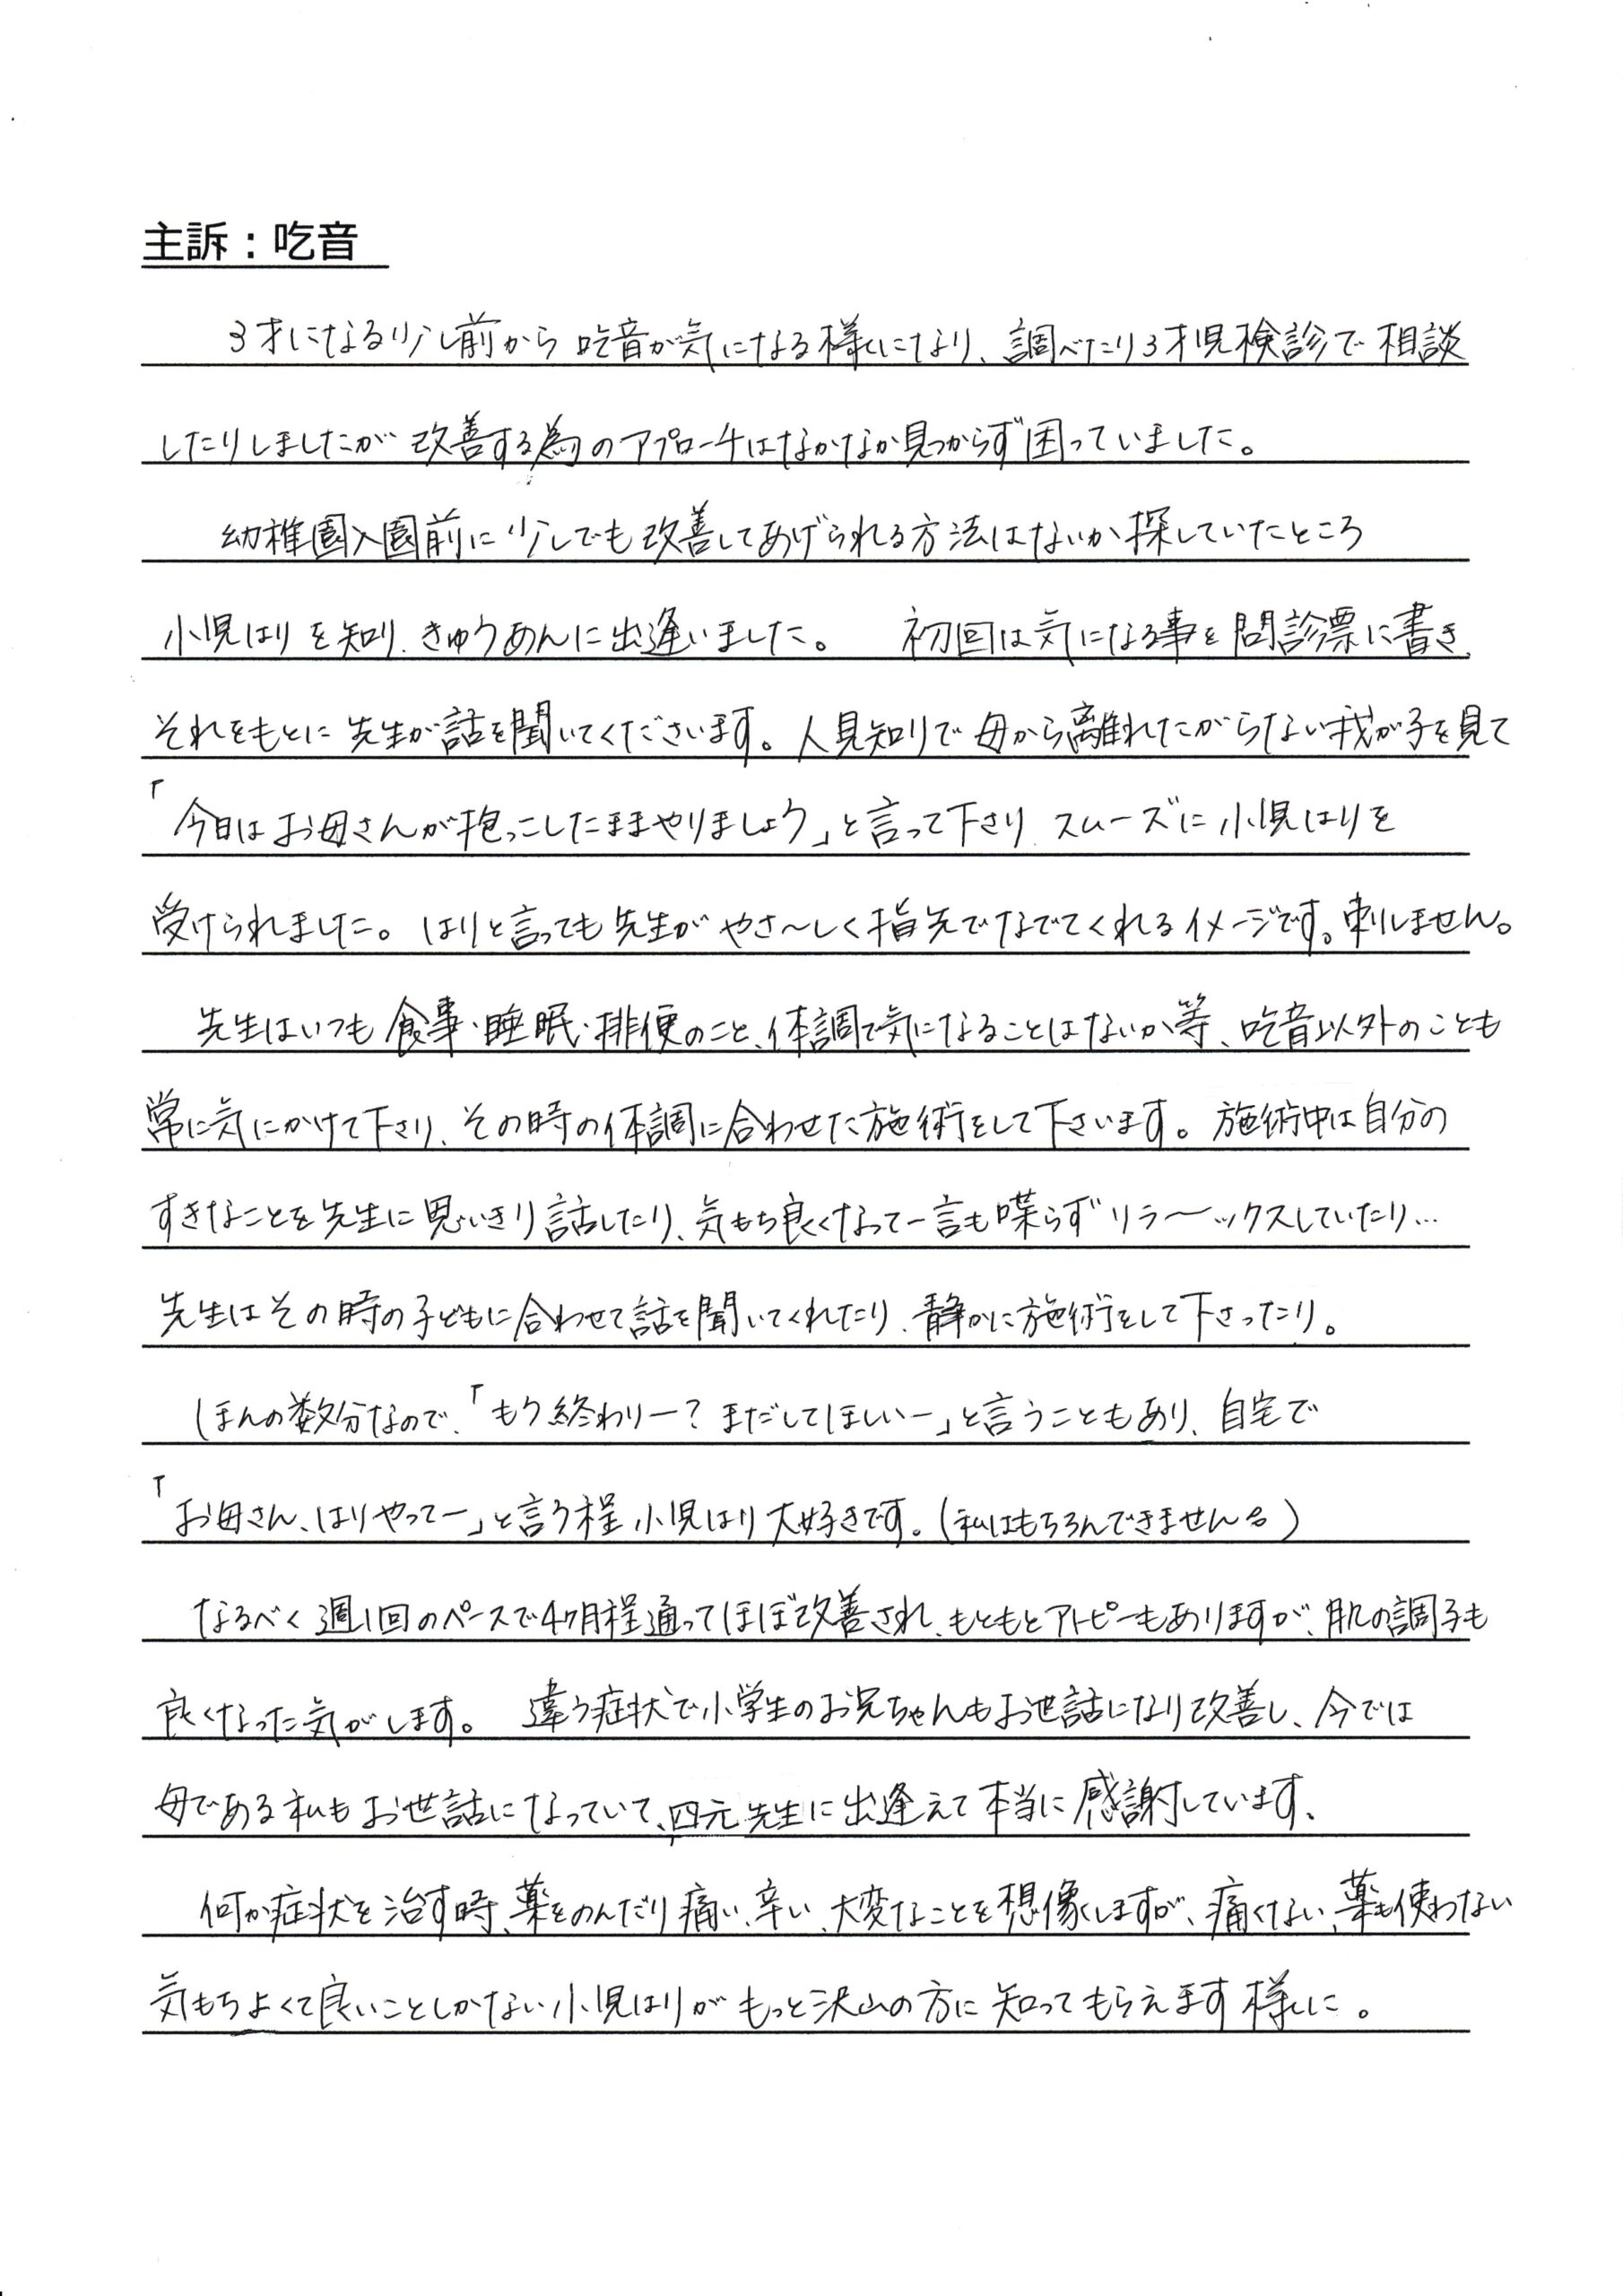 主訴：吃音
3才になる少し前から 吃音が気になる様にになり、調べたり3才児検診で相談
したりしましたが 改善する為のアプローチはなかなか見つからず困っていました。
幼稚園入園前に少しでも改善してあげられる方法はないか探していたところ
小児はりを知り、きゅうあんに出逢いました。 初回は気になる事を問診票に書き、
それをもとに先生が話を聞いてくださいます。人見知りで母から離れたがらない我が子を見て
「今日はお母さんが抱っこしたままやりましょう」と言って下さり スムーズに小児はりを
受けられました。はりと言っても先生がやさ〜しく指先でなでてくれるイメージです。刺しません。
先生はいつも食事・睡眠・排便のこと、体調で気になることはないか等、吃音以外のことも
常に気にかけて下さり、その時の体調に合わせた施術をして下さいます。施術中は自分の
すきなことを先生に思いきり話したり、気もち良くなって一言も喋らずリラ〜ックスしていたり…
先生はその時の子どもに合わせて話を聞いてくれたり、静かに施術をして下さったり。
ほんの数分なので、「もう終わりー？まだしてほしいー」と言うこともあり、自宅で
「お母さん、はりやってー」と言う程小児はり大好きです。（私はもちろんできません）
なるべく週1回のペースで4ヶ月程通ってほぼ改善され、もともとアトピーもありますが、肌の調子も
良くなった気がします。 違う症状で小学生のお兄ちゃんもお世話になり改善し、今では
母である私もお世話になっていて、四元先生に出逢えて本当に感謝しています、
何か症状を治す時、薬をのんだり痛い、辛い、大変なことを想像しますが、痛くない、薬も使わない
気もちよくて良いことしかない小児はりがもっと沢山の方に知ってもらえます様にに。